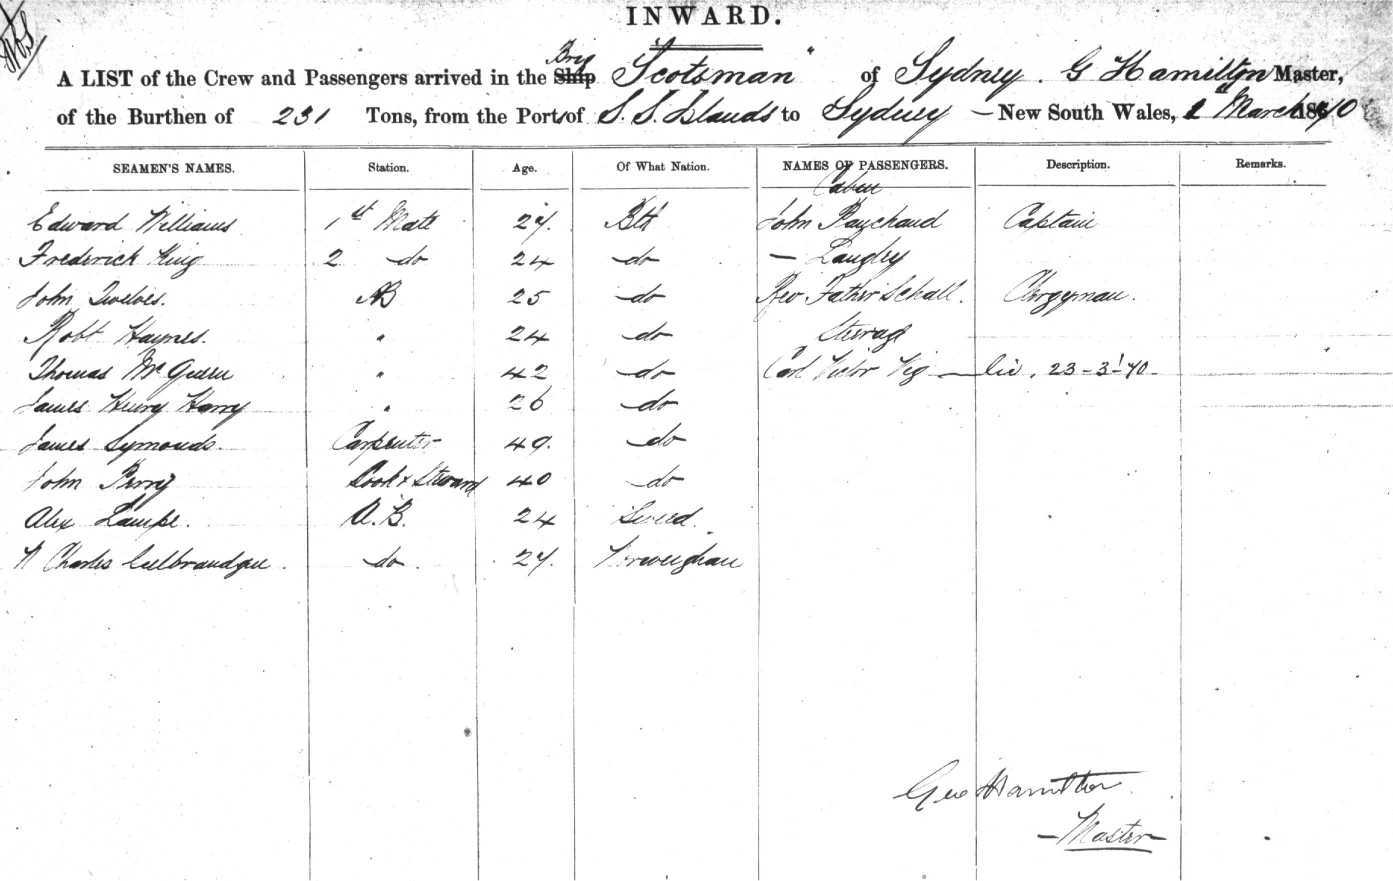 INWARD.
Brig
A LIST of the Crew and Passengers arrived in the Ship "Scotsman" of Sydney. G Hamilton Master,
of the Burthen of 231 Tons, from the Port of S. S. Islands to Sydney — New South Wales, March 1870
SEAMEN'S NAMES. Station. Age. Of What Nation. NAMES OF PASSENGERS. Description. Remarks.
Caben
Edward Williams 1st Mate 27. Bth John Raychaud Captain
Frederick King 2 do 24 do — Langley
John Twelves. AB 25 do Rev Father Schall. Clergyman.
Robt Haynes. " 24 do Steerage
Thomas McGueen " 42 do Carl Victor Vig — lid. 23-3-70-
James Henry Harry " 26 do
James Symonds. Carpenter 49. do
John Perry Cook & Steward 40 do
Alex Lampe. A.B. 24 Sweed.
N Charles do. 27. Norweighan
Geo Hamilton
— Master —